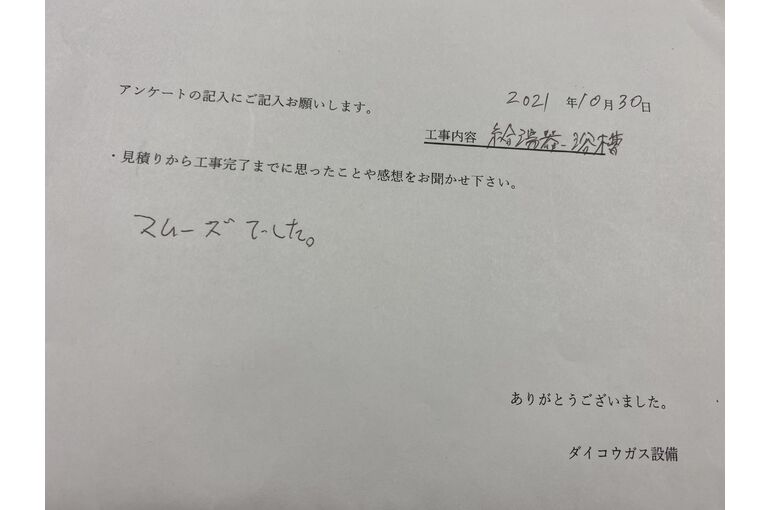 アンケートの記入にご記入お願いします。
2021 年10月30日
工事内容 給湯器-浴槽
・見積りから工事完了までに思ったことや感想をお聞かせ下さい。
スムーズでした。
ありがとうございました。
ダイコウガス設備